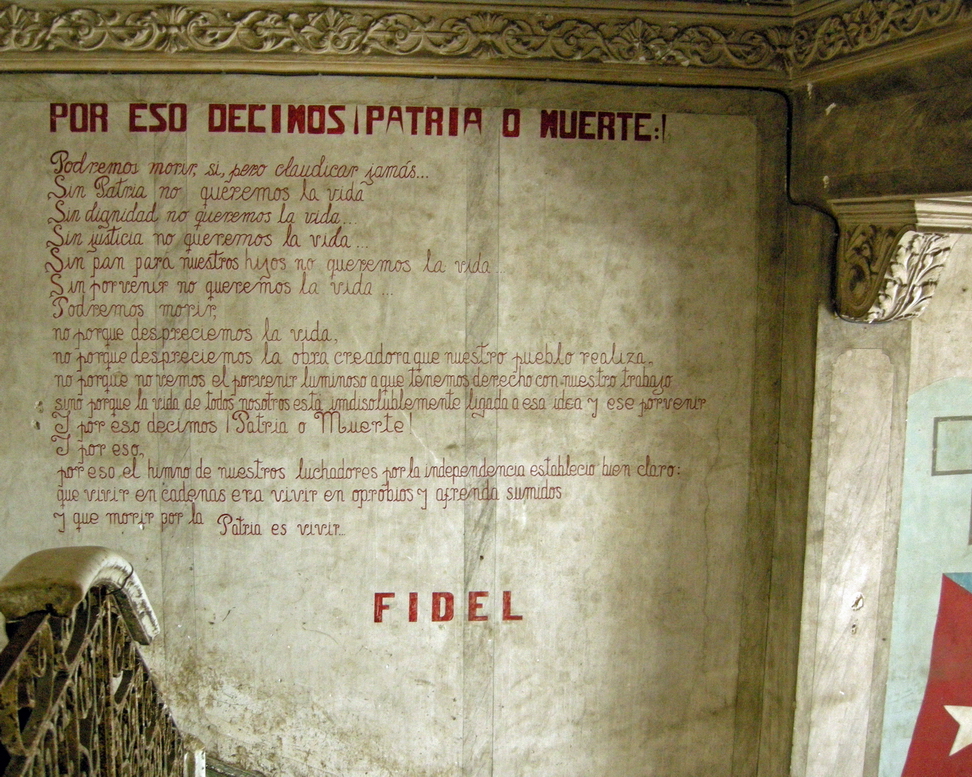 POR ESO DECIMOS ¡PATRIA O MUERTE:!
Podremos morir, si, pero claudicar jamás...
Sin Patria no queremos la vida
Sin dignidad no queremos la vida...
Sin justicia no queremos la vida...
Sin pan para nuestros hijos no queremos la vida...
Sin porvenir no queremos la vida ...
Podremos morir,
no porque despreciemos la vida,
no porque despreciemos la obra creadora que nuestro pueblo realiza,
no porque no vemos el porvenir luminoso a que tenemos derecho con nuestro trabajo
sino porque la vida de todos nosotros está indisolublemente ligada a esa idea y ese porvenir
Y por eso decimos ¡Patria o Muerte!
Y por eso,
por eso el himno de nuestros luchadores por la independencia establecio bien claro:
que vivir en cadenas era vivir en oprobios y afrenda sumidos
y que morir por la Patria es vivir...
FIDEL